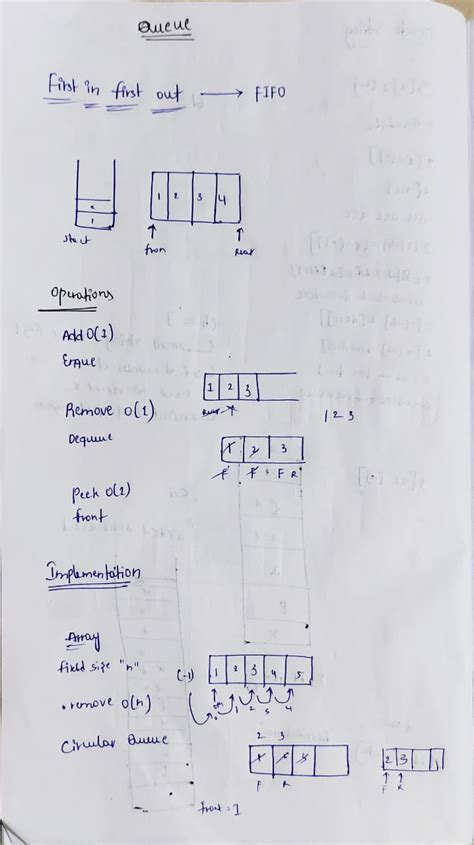 Queue
First in first out → FIFO
2
1
1 2 3 4
front rear
Operations
Add O(1)
1 2 3
Remove O(1)
1 2 3
1 2 3
F F F R
Peek O(1)
front
Implementation
Array
fixed size "n"
(-1) 1 2 3 4 5
. remove O(n)
1 2 3 4
Circular Queue
2 3
2 3
F R
F R
front = 1